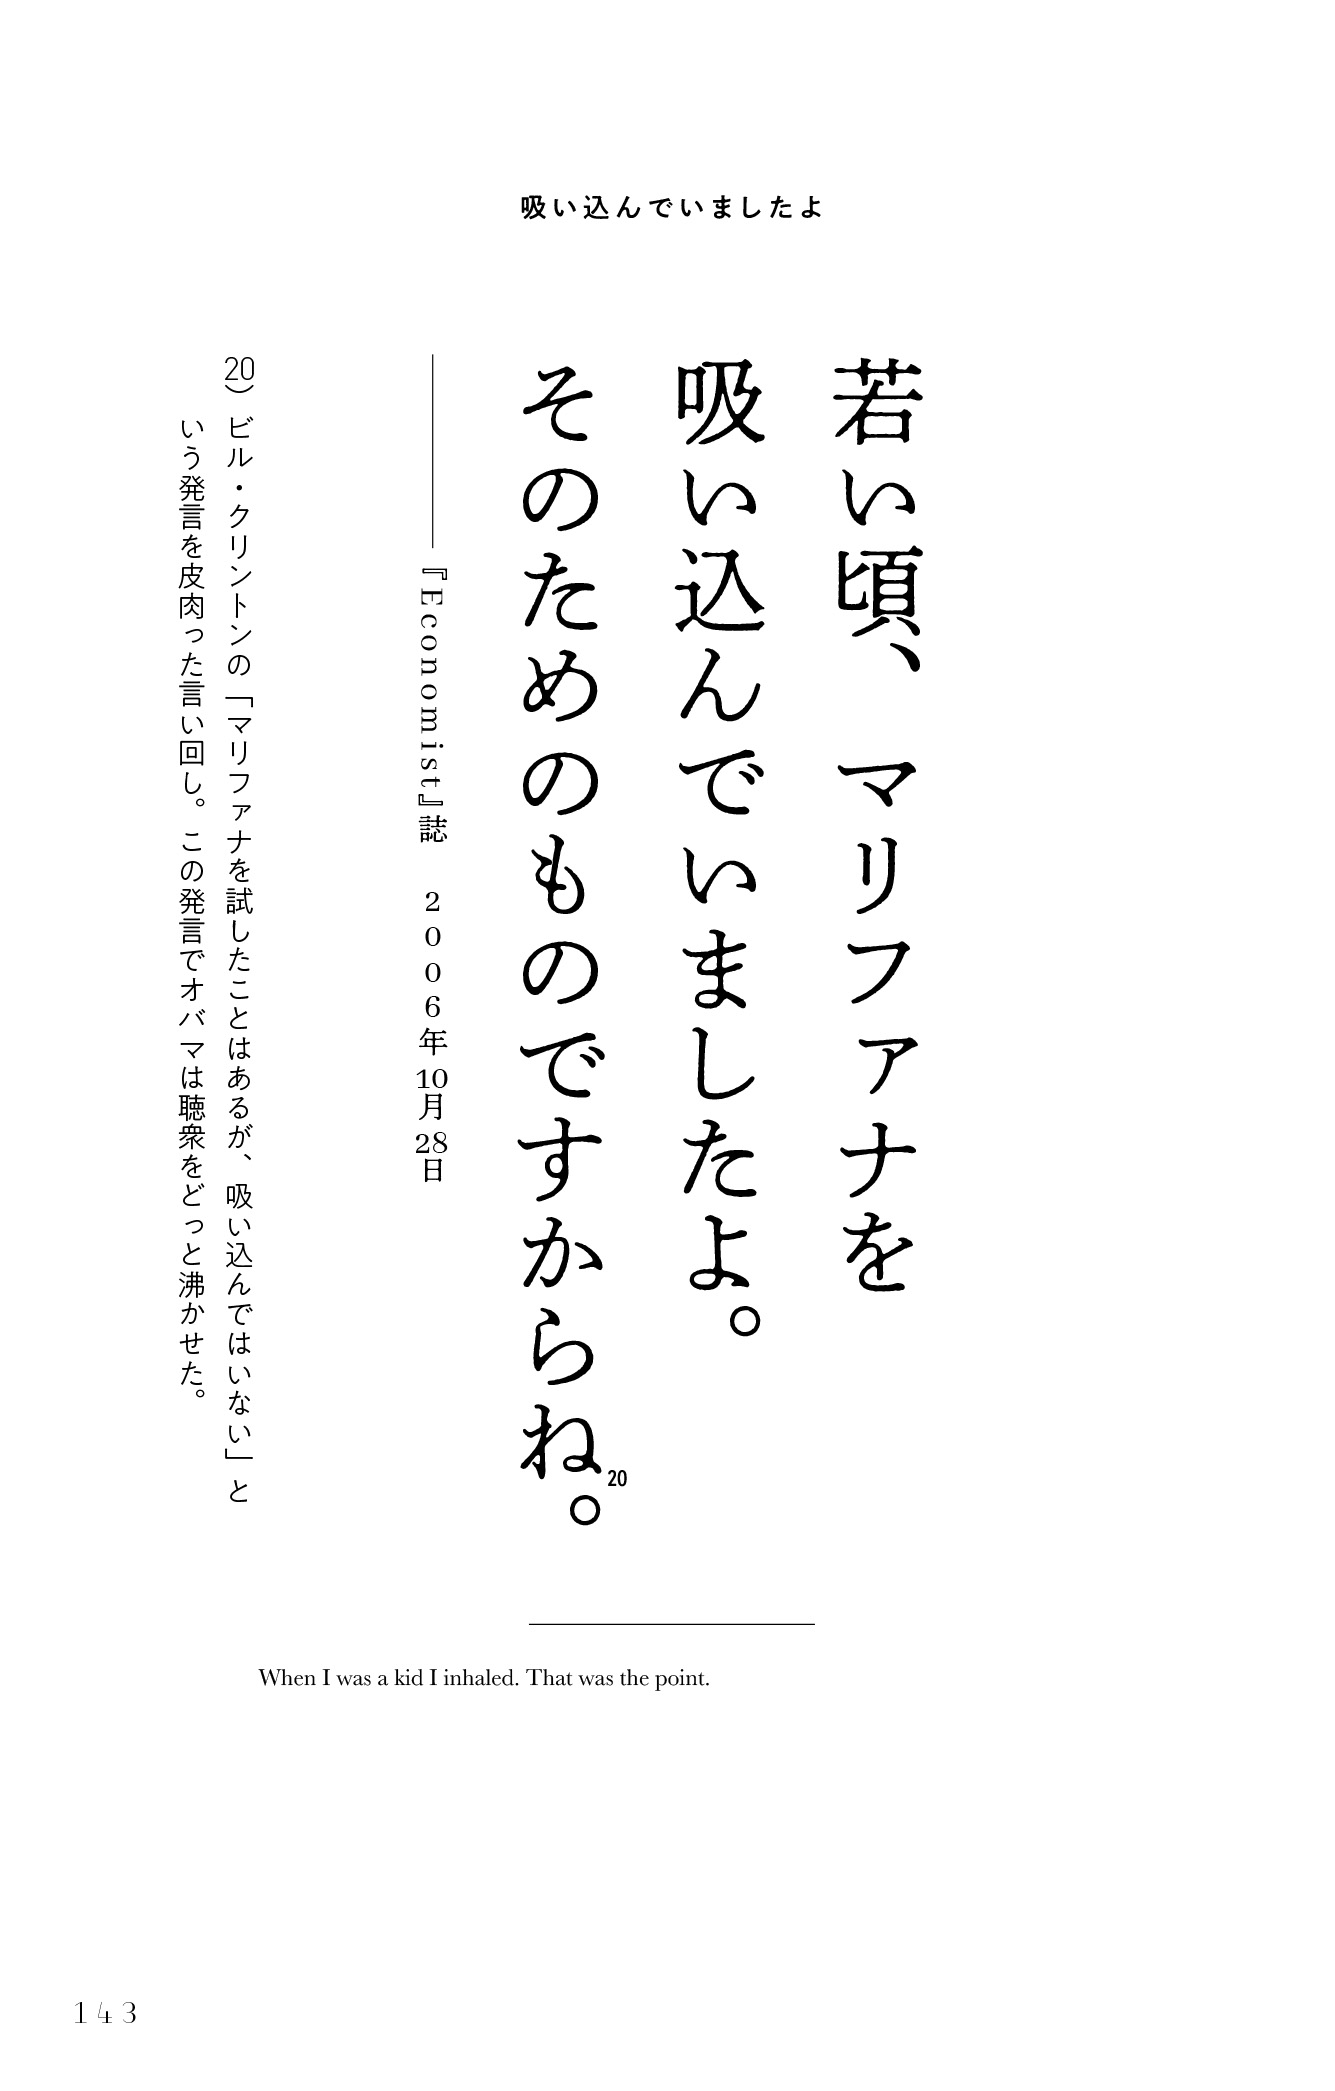 吸い込んでいましたよ
若い頃、マリファナを
吸い込んでいましたよ。
そのためのものですからね20。
――『Economist』誌　2006年10月28日
20）ビル・クリントンの「マリファナを試したことはあるが、吸い込んではいない」と
いう発言を皮肉った言い回し。この発言でオバマは聴衆をどっと沸かせた。
When I was a kid I inhaled. That was the point.
143